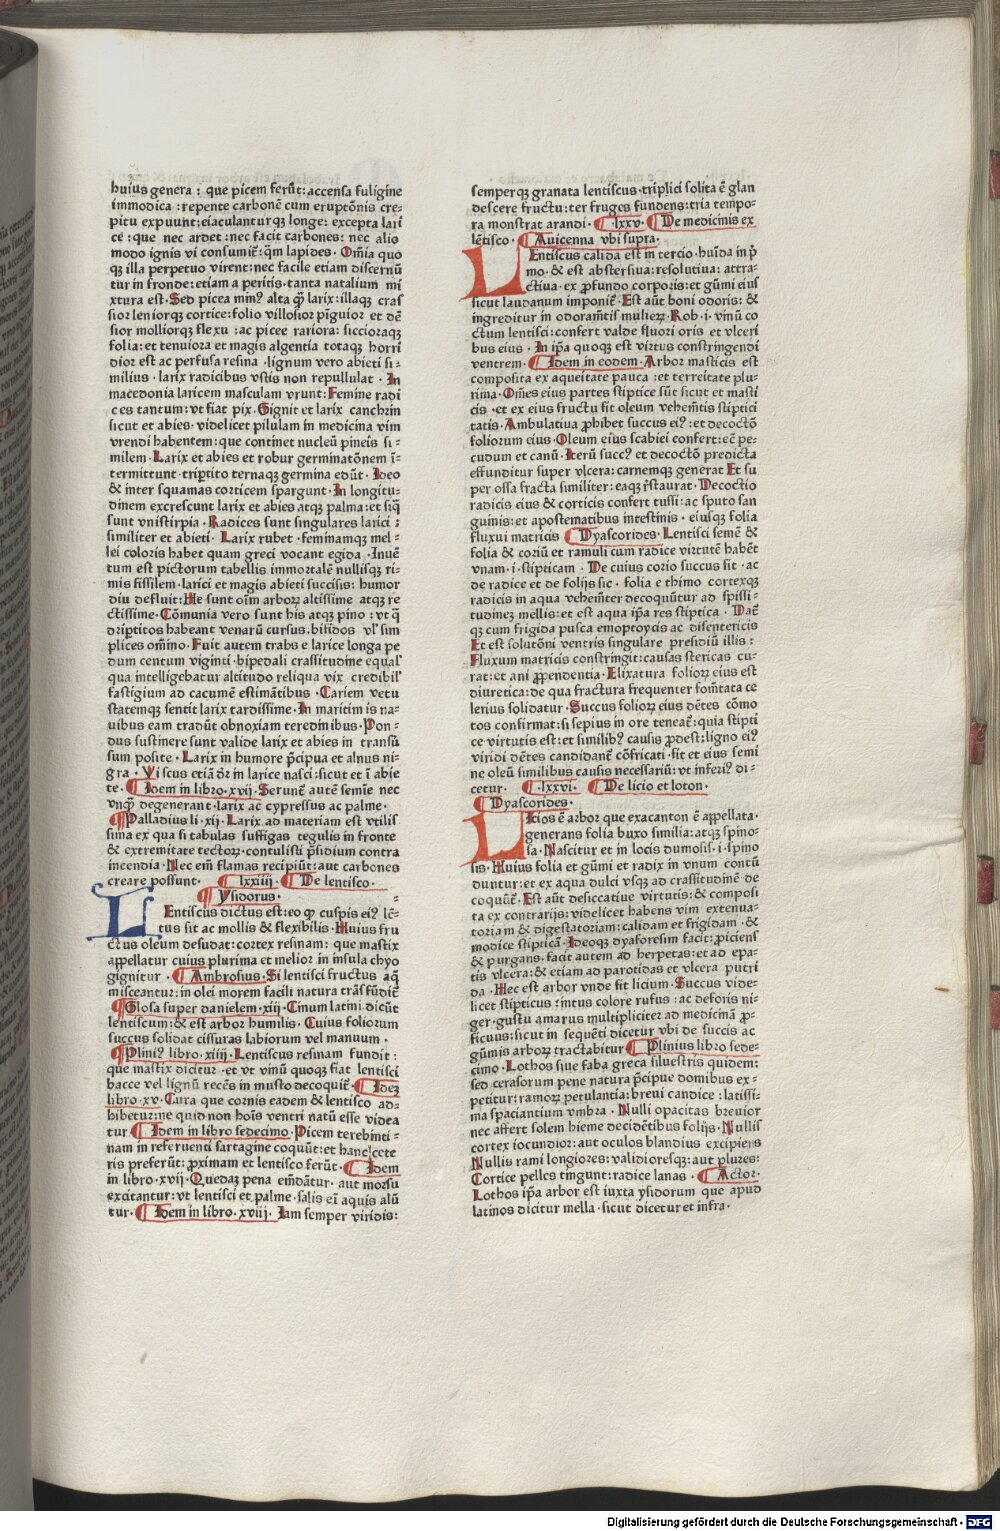 huius genera : que picem ferūt: accensa fuligine
immodica : repente carbonē cum eruptōnis cre⸗
pitu expuunt: eiaculanturqꝫ longe: excepta lari
ce : que nec ardet : nec facit carbones: nec alio
modo ignis vi consumit᷑: qm̄ lapides · Om̄ia quo
qꝫ illa perpetuo virent: nec facile etiam discernū
tur in fronde: etiam a peritis · tanta natalium mi
xtura est · Sed picea minꝰ alta qꝫ larix: illaqꝫ cras
sior leniorqꝫ cortice: folio villosior pīguior et dē
sior molliorqꝫ flexu : ac picee rariora: siccioraqꝫ
folia: et tenuiora et magis algentia totaqꝫ horri
dior est ac perfusa resina · lignum vero abieti si⸗
milius · larix radicibus vstis non repullulat · In
macedonia laricem masculam vrunt: Femine radi
ces tantum: vt fiat pix · Gignit et larix canchrin
sicut et abies · videlicet pilulam in medicina vim
vrendi habentem: que continet nucleū pineis si⸗
milem · Larix et abies et robur germinatōnem ī⸗
termittunt · triptito ternaqꝫ germina edūt · Ideo
& inter squamas corticem spargunt · In longitu⸗
dinem excrescunt larix et abies atqꝫ palma: et siq̄
sunt vnistirpia · Radices sunt singulares larici :
similiter et abieti · Larix rubet · feminamqꝫ mel⸗
lei coloris habet quam greci vocant egida · Inuē
tum est pictorum tabellis immortalē nullisqꝫ ri⸗
mis fissilem · larici et magis abieti succisis: humor
diu defluit: He sunt oīm arboꝝ altissime atqꝫ re
ctissime · Cōmunia vero sunt his atqꝫ pino : vt q̄
driptitos habeant venarū cursus · bifidos vl' sim
plices om̄ino · Fuit autem trabs e larice longa pe
dum centum viginti · bipedali crassitudine equal'
qua intelligebatur altitudo reliqua vix credibil'
fastigium ad cacumē estimātibus · Cariem vetu
statemqꝫ sentit larix tardissime · In maritimis na⸗
uibus eam tradūt obnoxiam teredinibus · Pon⸗
dus sustinere sunt valide larix et abies in transū
sum posite · Larix in humore p̄cipua et alnus ni⸗
gra · Viscus etiā dr̄ in larice nasci: sicut et ī abie
te · ¶ Idem in libro · xvij · Serunt᷑ autē semīe nec
vnqꝫ degenerant · larix ac cypressus ac palme ·
¶ Palladius li · xij · Larix ad materiam est vtilis
sima ex qua si tabulas suffigas tegulis in fronte
& extremitate tectoꝝ · contulisti p̄sidium contra
incendia · Nec em̄ flamas recipiūt: aut carbones
creare possunt · ¶ lxxiiij · ¶ De lentisco ·
¶ Ysidorus ·
LEntiscus dictus est: eo qꝫ cuspis eiꝰ lē⸗
tus sit ac mollis & flexibilis · Huius fru
ctus oleum desudat: cortex resinam: que mastix
appellatur cuius plurima et melior in insula chyo
gignitur · ¶ Ambrosius · Si lentisci fructus aq̄
misceantur: in olei morem facili natura trāsfūdit᷑
¶ Glosa super danielem · xiij · Cinum latini dicūt
lentiscum: & est arbor humilis · Cuius foliorum
succus solidat cissuras labiorum vel manuum ·
¶ Pliniꝰ libro · xiiij · Lentiscus resinam fundit :
que mastix dicitur · et vt vinū quoqꝫ fiat lentisci
bacce vel lignū recēs in musto decoquit᷑ · ¶ Ideꝫ
libro · xv · Cura que cornis eadem & lentisco ad⸗
hibetur: ne quid non hoīs ventri natū esse videa
tur · ¶ Idem in libro sedecimo · Picem terebinti⸗
nam in referuenti sartagine coquūt: et hanc cete
ris preferūt: p̄ximam et lentisco ferūt · ¶ Idem
in libro · xvij · Quedaꝫ pena emēdātur · aut morsu
excitantur: vt lentisci et palme · salis ei᷒ aquis alū
tur · ¶ Idem in libro · xviij · Iam semper viridis:
semperqꝫ granata lentiscus · triplici solita ē glan
descere fructu: ter fruges fundens: tria tempo⸗
ra monstrat arandi · ¶ · lxxv · ¶ De medicinis ex
lētisco · ¶ Auicenna vbi supra ·
LEntiscus calida est in tercio · hūida in p̄
mo · & est abstersiua: resolutiua: attra⸗
ctiua · ex p̄fundo corporis: et gūmi eius
sicut laudanum imponit᷑ · Est aūt boni odoris: &
ingreditur in odoramītis mulieꝝ · Rob · i · vinū co
ctum lentisci: confert valde fluori oris et vlceri
bus eius · In ip̄a quoqꝫ est virtus constringendi
ventrem · ¶ Idem in eodem · Arbor masticis est
composita ex aqueitate pauca : et terreitate plu⸗
rima · Om̄es eius partes stiptice sūt sicut et masti
cis · et ex eius fructu fit oleum vehemētis stiptici
tatis · Ambulatiua p̄hibet succus eiꝰ: et decoctō
foliorum eius · Oleum eius scabiei confert: eē pe⸗
cudum et canū · Iterū succꝰ et decoctō predicta
effunditur super vlcera: carnemqꝫ generat Et su
per ossa fracta similiter: eaqꝫ r̄staurat · Decoctio
radicis eius & corticis confert tussi: ac sputo san
guinis: et apostematibus intestinis · eiusqꝫ folia
fluxui matricis ¶ Dyascorides · Lentisci semē &
folia & coriū et ramuli cum radice virtutē habēt
vnam · i · stipticam · De cuius corio succus fit · ac
de radice et de folijs sic · folia e thimo cortexqꝫ
radicis in aqua vehemēter decoquūtur ad spissi⸗
tudineꝫ mellis: et est aqua ip̄a res stiptica · Dat᷑
qꝫ cum frigida pusca emoptoycis ac disentericis
Et est solutōni ventris singulare presidiū illis :
Fluxum matricis constringit: causas stericas cu⸗
rat: et ani p̄pendentia · Elixatura folioꝝ eius est
diuretica: de qua fractura frequenter fom̄tata ce
lerius solidatur · Succus folioꝝ eius dētes cōmo
tos confirmat: si sepius in ore teneat᷑: quia stipti
ce virtutis est: et similibꝰ causis p̄dest: ligno eiꝰ
viridi dētes candidant᷑ cōfricati · fit et eius semi
ne oleū similibus causis necessariū: vt inferiꝰ di⸗
cetur · ¶ · lxxvi · ¶ De licio et loton ·
¶ Dyascorides ·
LIcios ē arbor que exacanton ē appellata ·
generans folia buxo similia: atqꝫ spino⸗
sa · Nascitur et in locis dumosis · i · spino
sis · Huius folia et gūmi et radix in vnum contū
duntur: et ex aqua dulci vsqꝫ ad crassitudinē de
coquūt᷑ · Est aūt desiccatiue virtutis: & composi
ta ex contrarijs: videlicet habens vim extenua⸗
toriam & digestatoriam: calidam et frigidam · &
modice stipticā · Ideoqꝫ dyaforesim facit: p̄iciens
& purgans · facit autem ad herpetas: et ad epa⸗
tis vlcera: & etiam ad parotidas et vlcera putri
da · Hec est arbor vnde fit licium · Succus vide⸗
licet stipticus : intus colore rufus : ac deforis ni⸗
ger · gustu amarus multipliciter ad medicinā p̄⸗
ficuus: sicut in sequēti dicetur vbi de succis ac
gūmis arboꝝ tractabitur ¶ Plinius libro sede⸗
cimo · Lothos siue faba greca siluestris quidem:
sed cerasorum pene natura p̄cipue domibus ex⸗
petitur: ramoꝝ petulantia: breui candice : latissi⸗
ma spaciantium vmbra · Nulli opacitas breuior
nec affert solem hieme decidētibus folijs · Nullis
cortex iocundior: aut oculos blandius excipiens
Nullis rami longiores: validioresqꝫ: aut plures:
Cortice pelles tingunt: radice lanas · ¶ Actor ·
Lothos ip̄a arbor est iuxta ysidorum que apud
latinos dicitur mella · sicut dicetur et infra ·
Digitalisierung gefördert durch die Deutsche Forschungsgemeinschaft - DFG